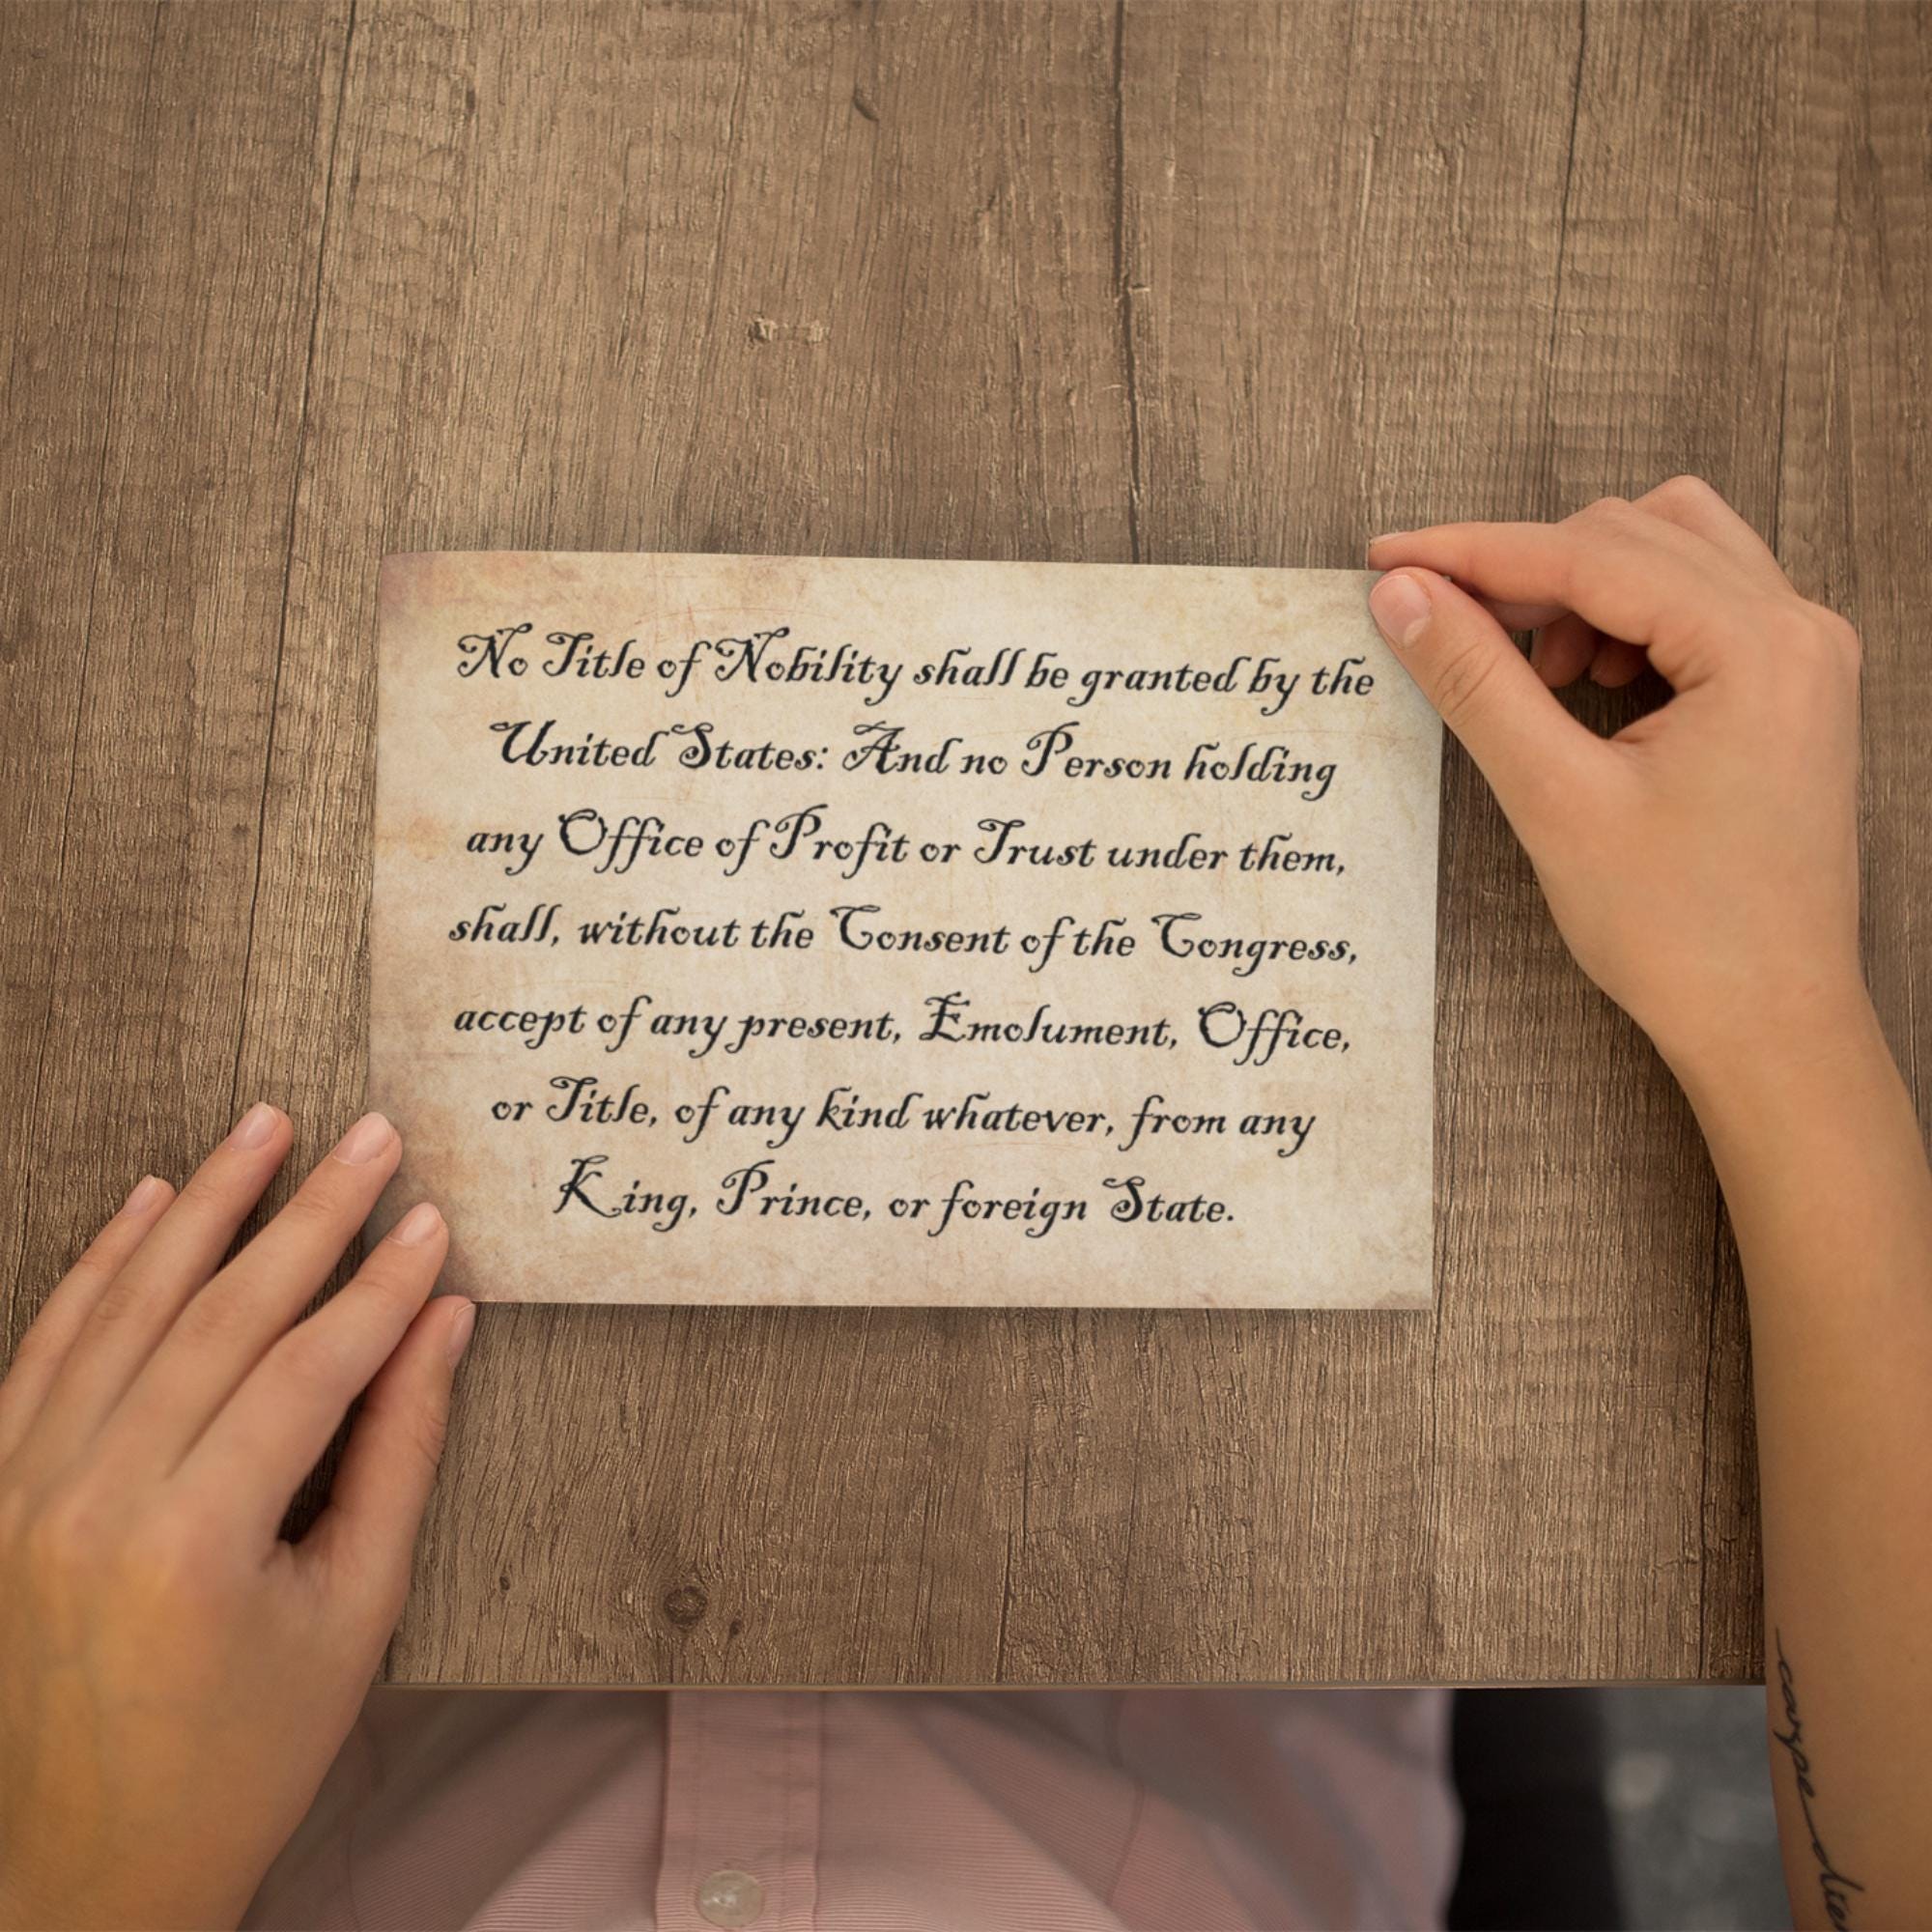 No Title of Nobility shall be granted by the
United States: And no Person holding
any Office of Profit or Trust under them,
shall, without the Consent of the Congress,
accept of any present, Emolument, Office,
or Title, of any kind whatever, from any
King, Prince, or foreign State.
carpe die